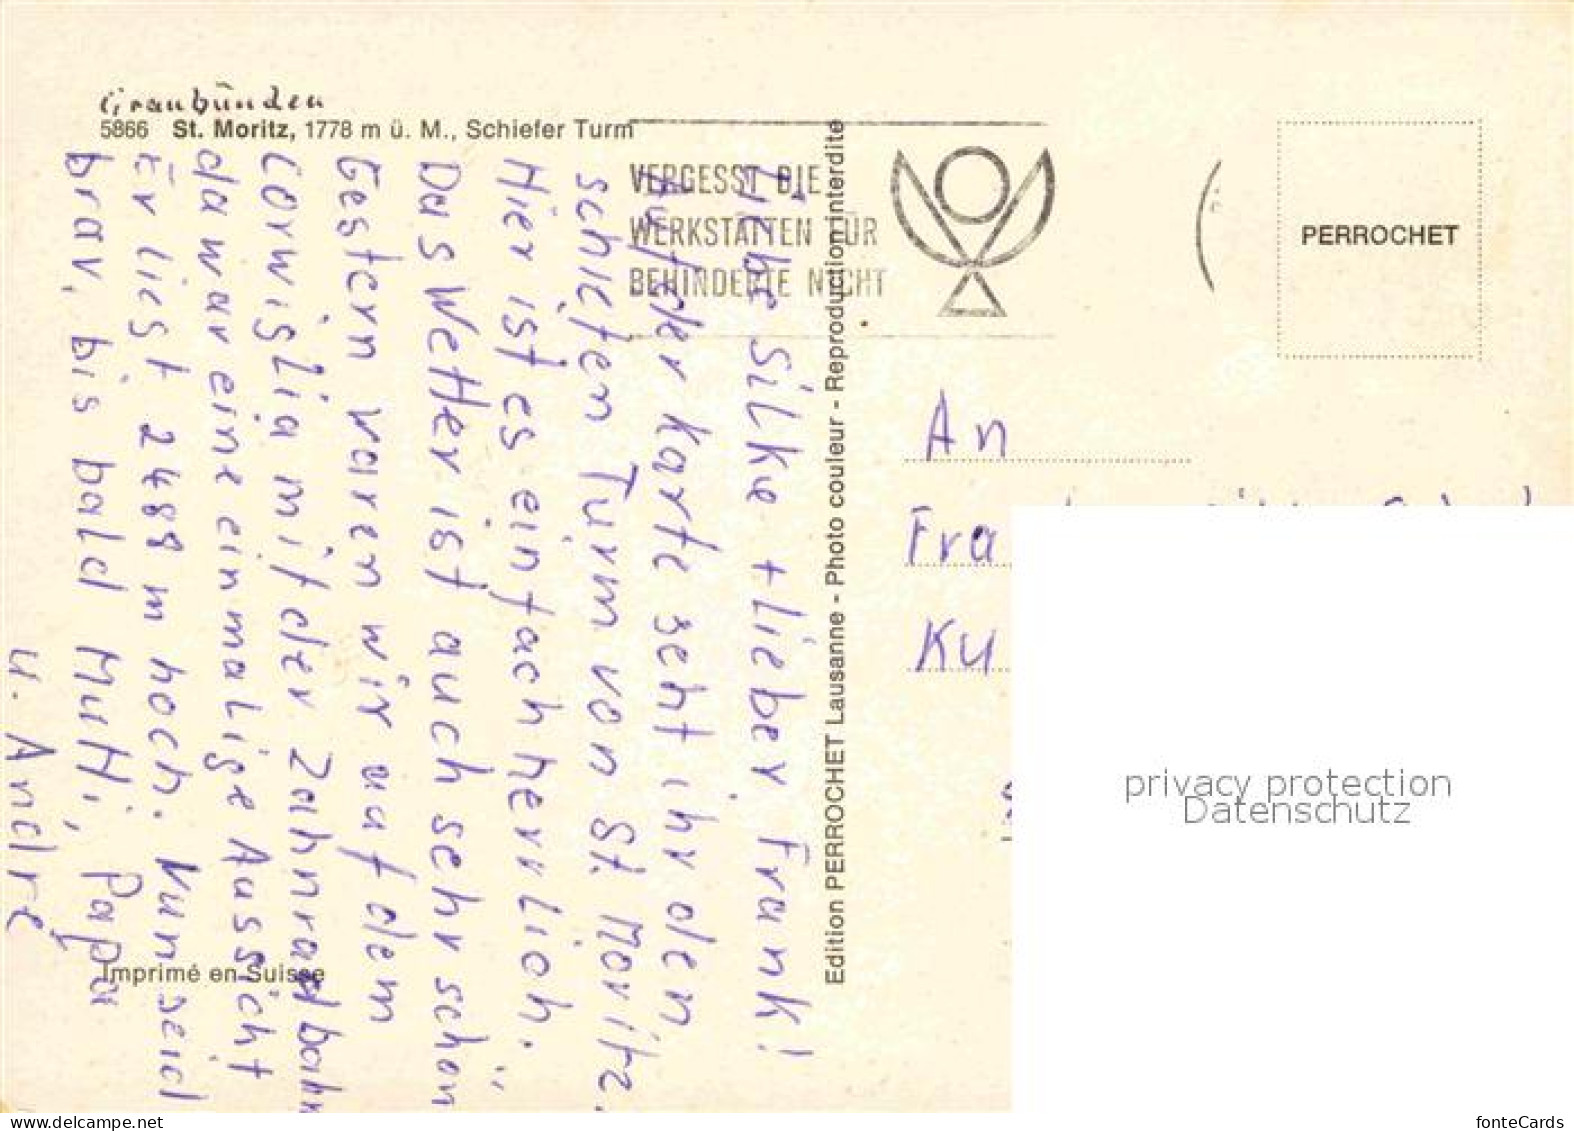 Graubünden
5866 St. Moritz, 1778 m ü. M., Schiefer Turm
VERGESST DIE
WERKSTÄTTEN FÜR
BEHINDERTE NICHT
PERROCHET
Liebe Silke + lieber Frank!
Auf der Karte seht ihr den
schiefen Turm von St. Moritz.
Hier ist es einfach herrlich.
Das Wetter ist auch sehr schön
Gestern waren wir auf dem
Corviglia mit der Zahnradbahn
da war eine einmalige Aussicht
Er liegt 2488 m hoch. Nun seid
brav, bis bald Mutti, Papa
u. André
Edition PERROCHET Lausanne - Photo couleur - Reproduction interdite
An
Fra
Ku
Imprimé en Suisse
privacy protection
Datenschutz
www.ansichtskarten-center.de
fonteCards